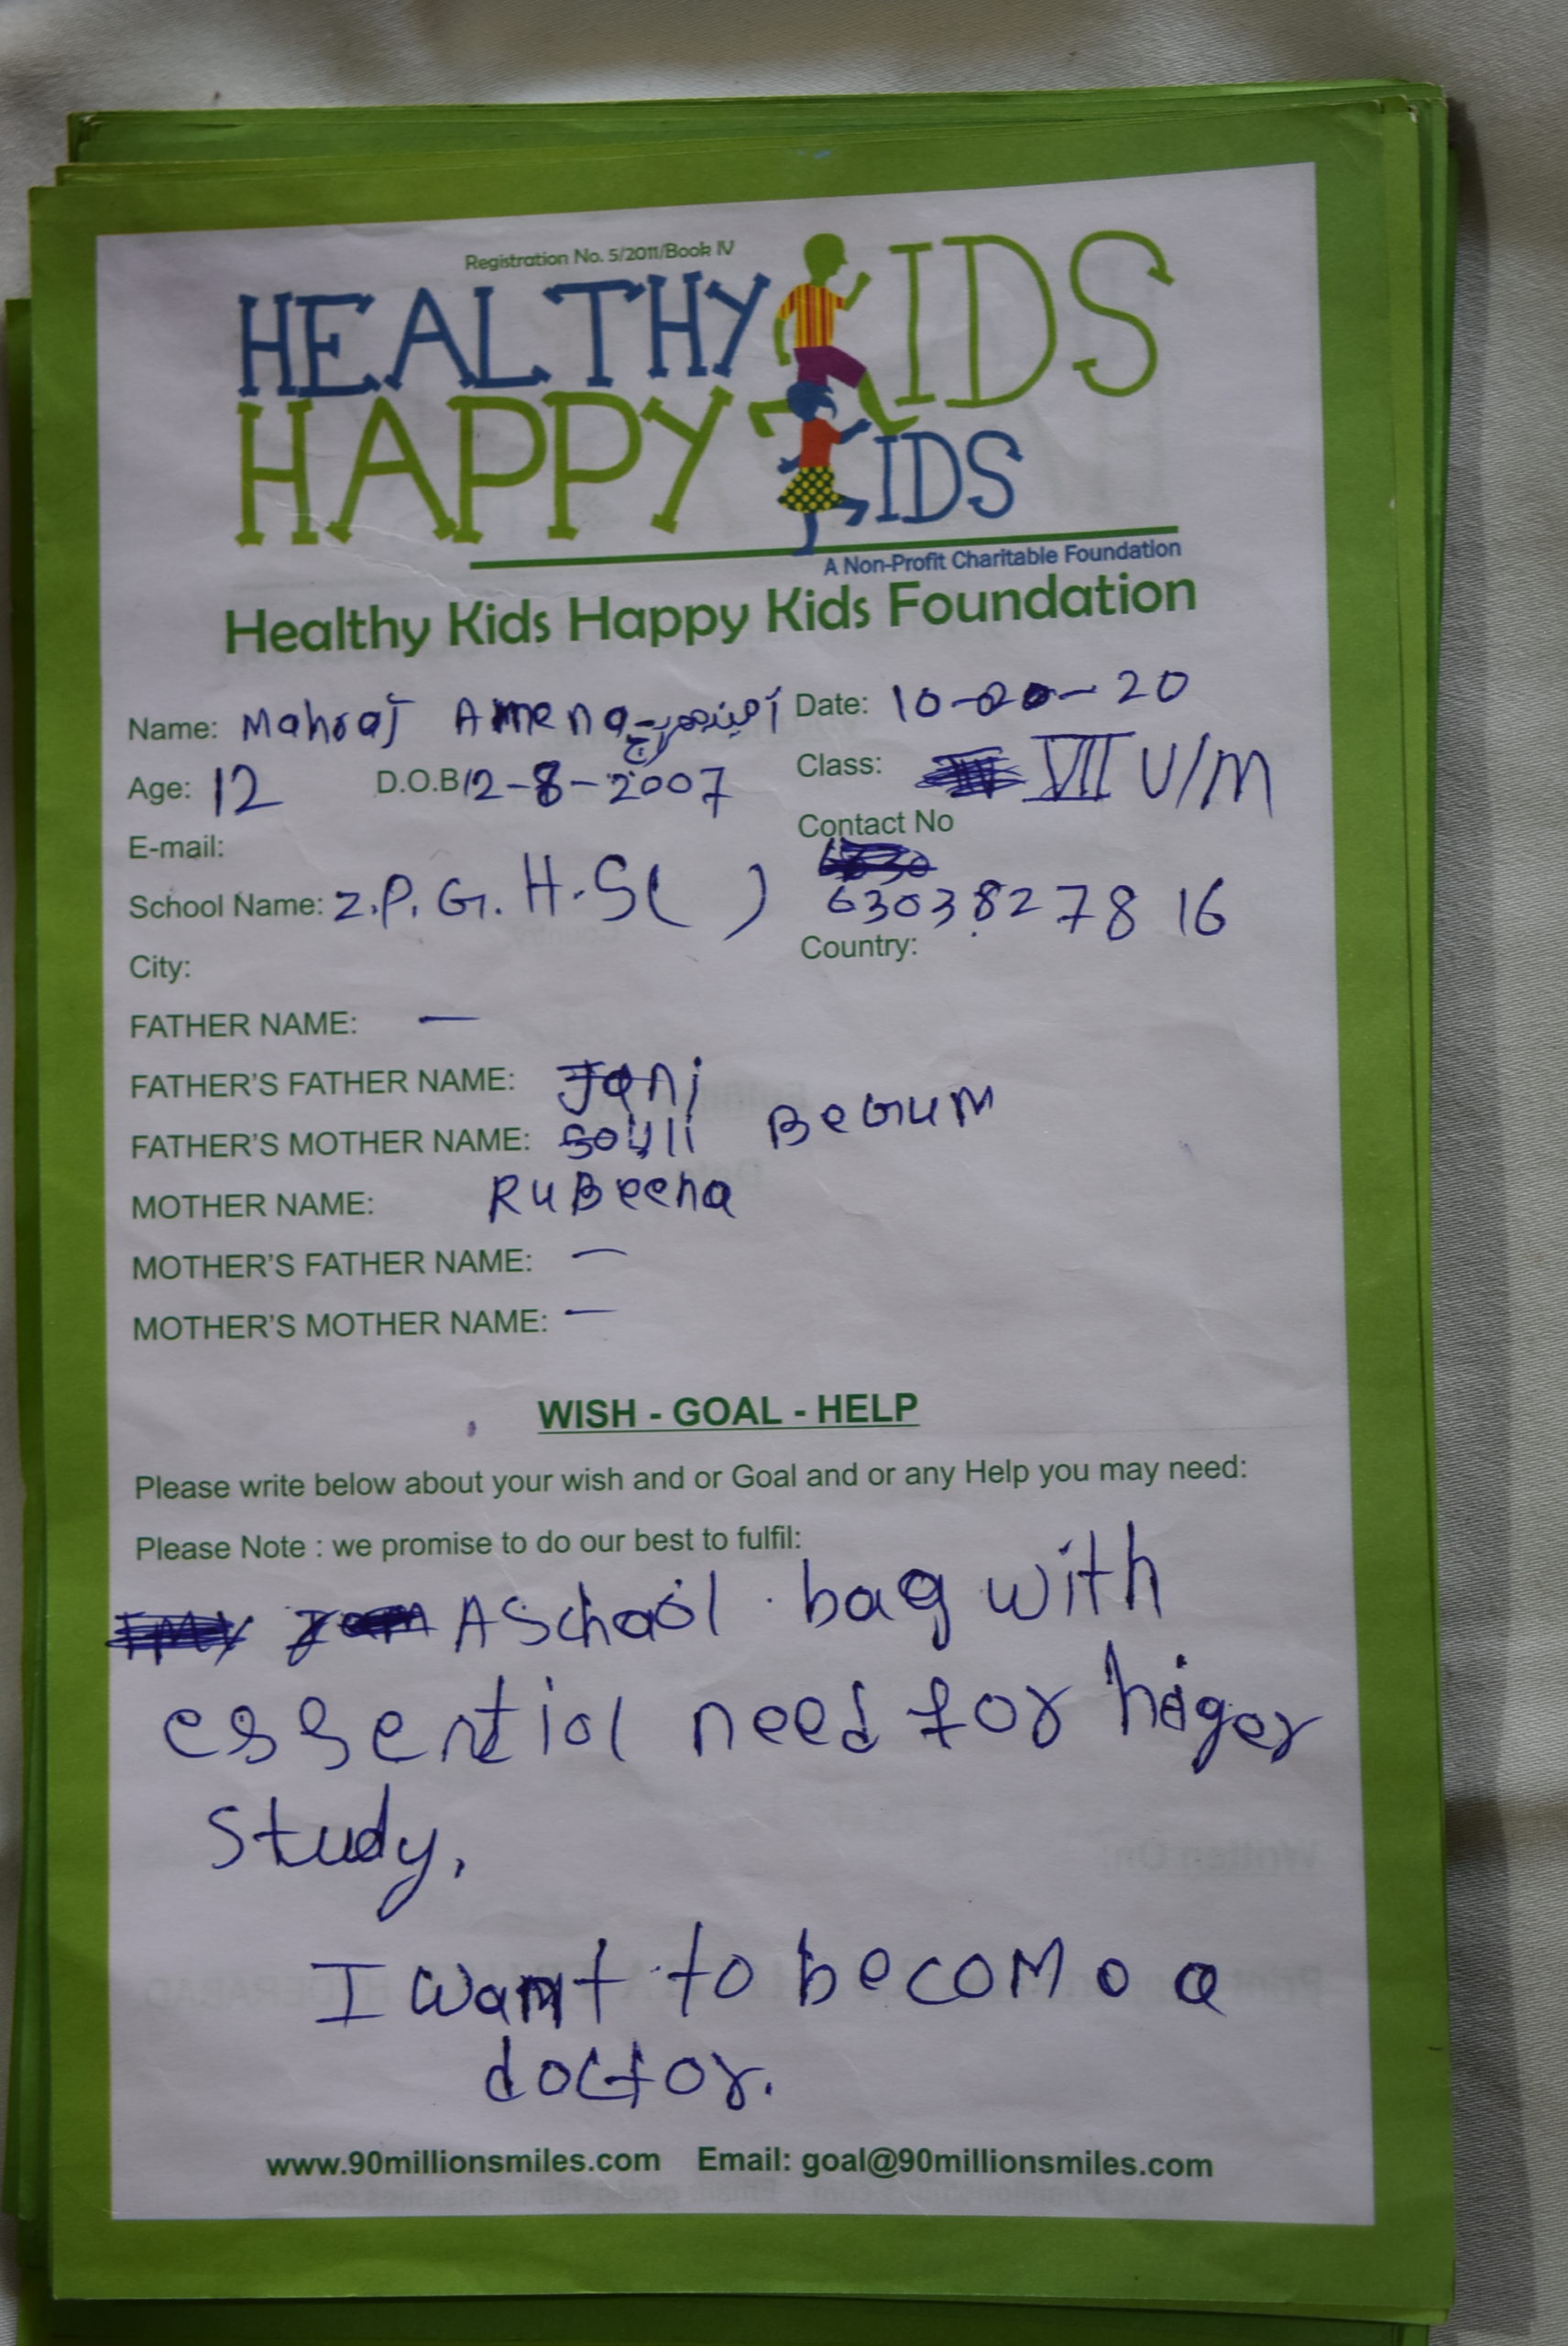 Registration No. 5/2011/Book IV
HEALTHY KIDS
HAPPY KIDS
A Non-Profit Charitable Foundation
Healthy Kids Happy Kids Foundation
Name: Mahraj Amena آمینہ مہرج Date: 10-02-20
Age: 12 D.O.B 12-8-2007 Class: VII U/M
E-mail: Contact No
School Name: Z.P.G.H.S( ) 6303827816
City: Country:
FATHER NAME: —
FATHER'S FATHER NAME: Jani
FATHER'S MOTHER NAME: Begum
MOTHER NAME: RuBeena
MOTHER'S FATHER NAME: —
MOTHER'S MOTHER NAME: —
WISH - GOAL - HELP
Please write below about your wish and or Goal and or any Help you may need:
Please Note : we promise to do our best to fulfil:
A School bag with
essential need for higer
study,
I want to become a
doctor.
www.90millionsmiles.com Email: goal@90millionsmiles.com